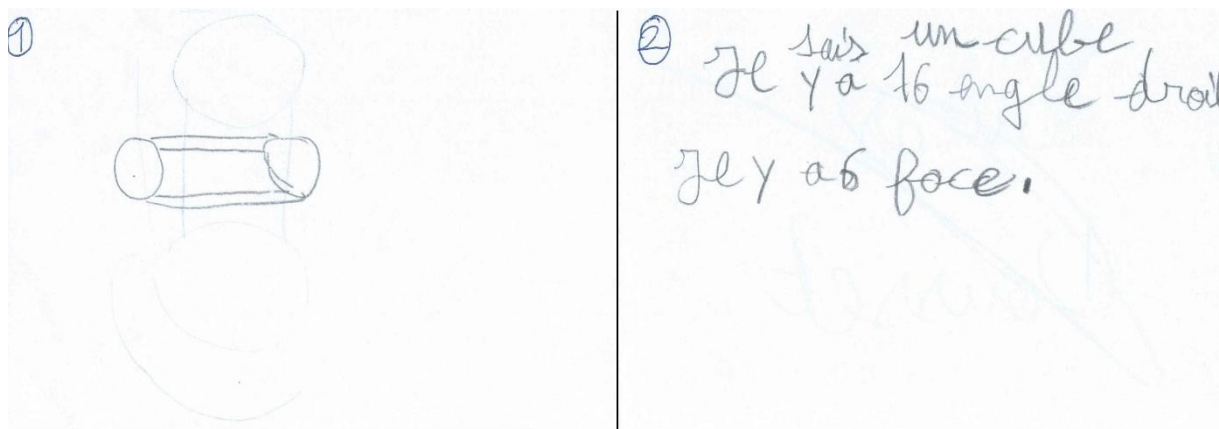 1
2
Je sais un cube
Il y a 16 angle droit
Il y a 6 face.